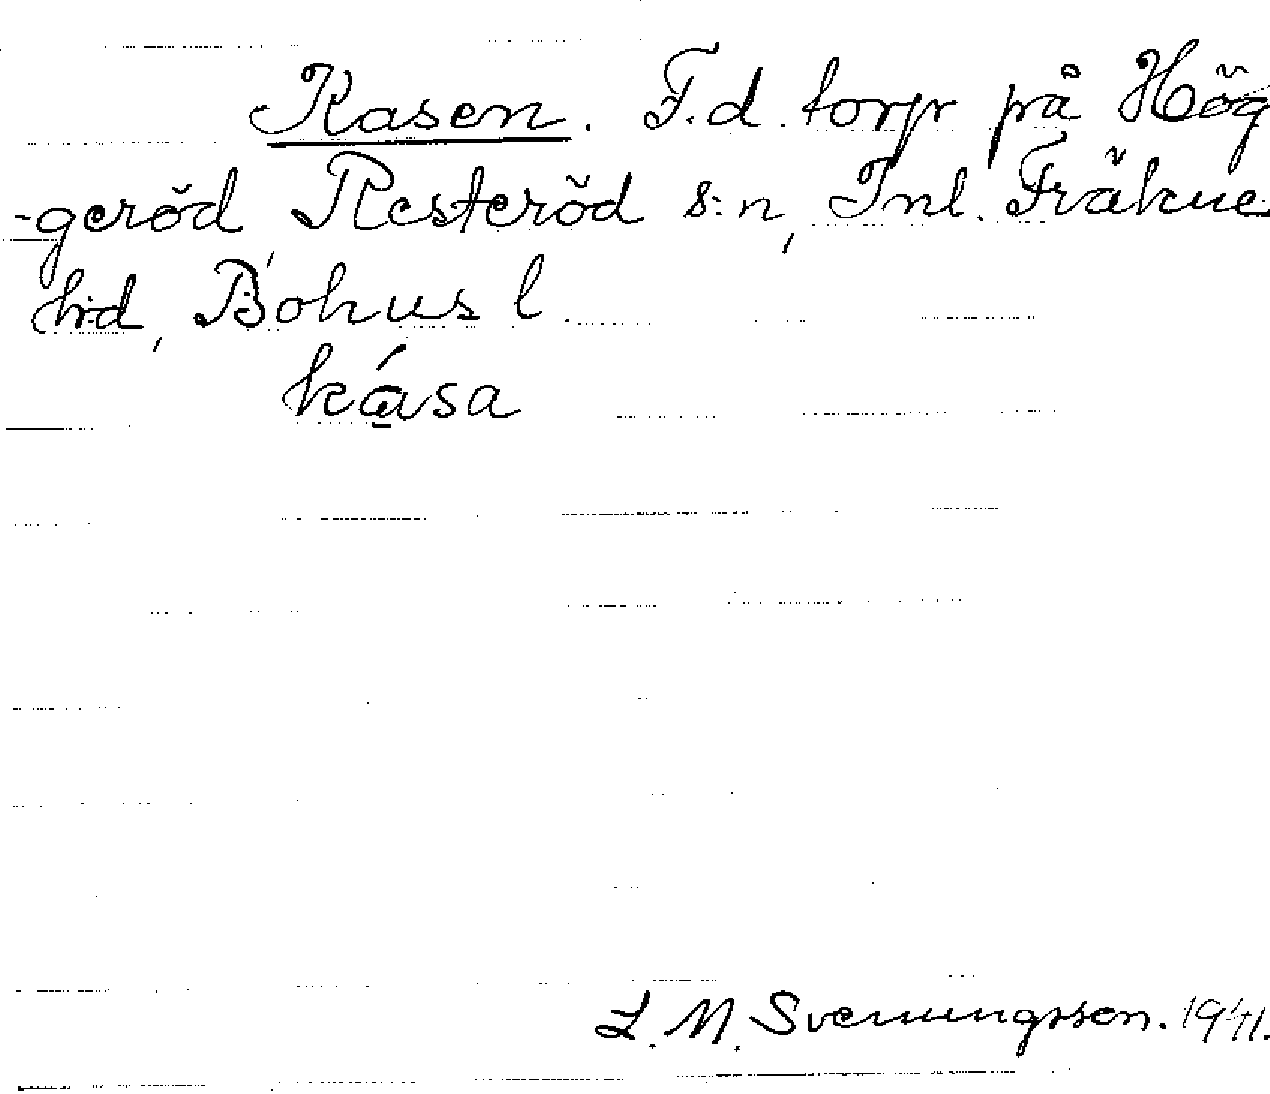 Kasen. F.d. torp på Hög
-geröd, Resteröd s:n, Inl. Fräkne
h:d, Bohus l.
kása
L. M. Svenungsson. 1941.